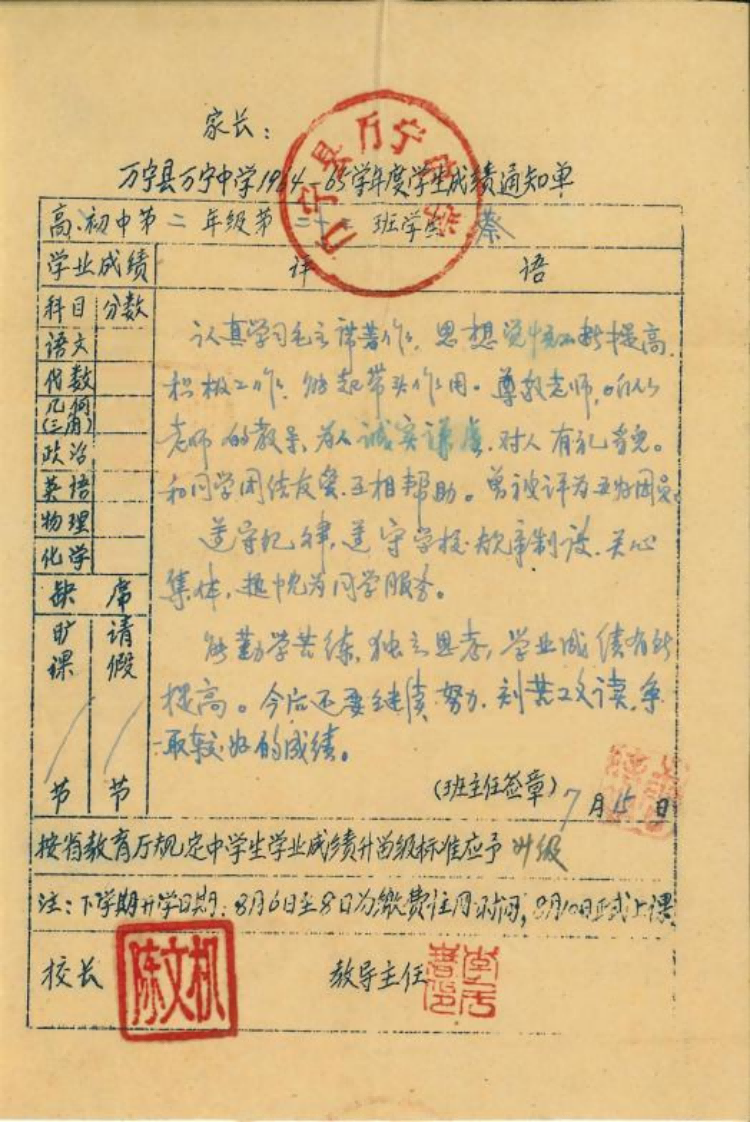 家长：
万宁县万宁中学1964—65学年度学生成绩通知单
万宁县万宁中学
高、初中第二年级第二 班学生 蔡
学业成绩 评语
科目 分数
语文
代数
几何(三角)
政治
英语
物理
化学
缺席
旷课 请假
节 节
认真学习毛主席著作，思想觉悟不断提高，
积极工作，能起带头作用。尊敬老师，听从
老师的教导，为人诚实谦虚，对人有礼貌。
和同学团结友爱，互相帮助。曾被评为五好团员。
遵守纪律，遵守学校规章制度，关心
集体，热忱为同学服务。
能勤学苦练，独立思考，学业成绩有所
提高。今后还要继续努力，刻苦攻读，争
取较好的成绩。
(班主任签章) 7月15日
按省教育厅规定中学生学业成绩升留级标准应予 升级
注：下学期开学日期：8月6日至8日为缴费注册时间，8月10日正式上课
校长 陈文机 教导主任